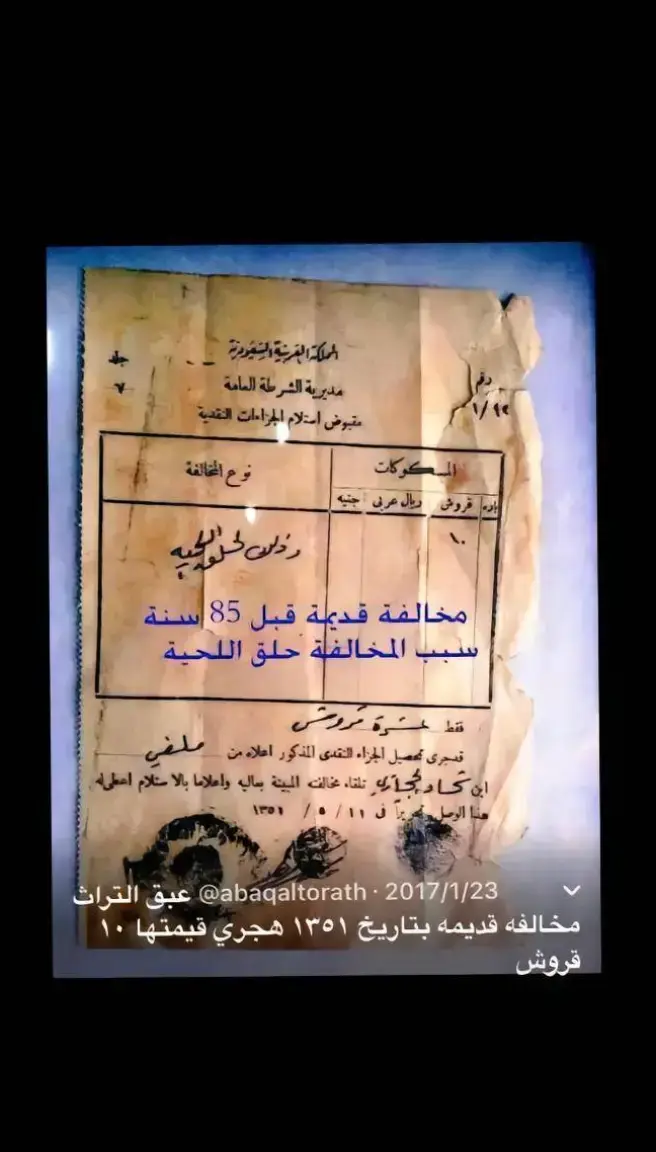 المملكة العربية السعودية
جلد
٧
رقم
مديرية الشرطة العامة
مقبوض استلام الجزاءات النقدية
المسكوكات
نوع المخالفة
باره قروش ريال عربى جنيه
١٠
وذلك لحلق اللحيه
مخالفة قديمة قبل 85 سنة
سبب المخالفة حلق اللحية
فقط عشرة قروش
قد جرى تحصيل الجزاء النقدى المذكور اعلاه من
ابن تلقاء مخالفته المبينة بعاليه واعلاما بالاستلام اعطى له
هذا الوصل تحريراً فى ١١ / ٥ / ١٣٥١
عبق التراث @abaqaltorath · 2017/1/23
مخالفه قديمه بتاريخ ١٣٥١ هجري قيمتها ١٠
قروش